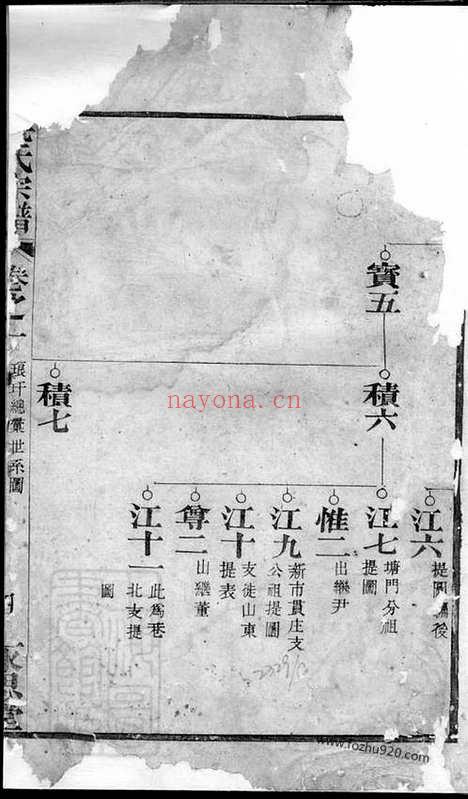 寳五
積六
積七
江六
提圖
後
江七
塘門分祖
提圖
惟二
出繼尹
江九
新市貫庄支
公祖提圖
江十
支徙山東
提表
尊二
出繼董
江十一
此為巷
北支提
圖
氏宗譜
卷之一
總彙世系圖
nayona.cn
www.rozhu920.com
2329/2